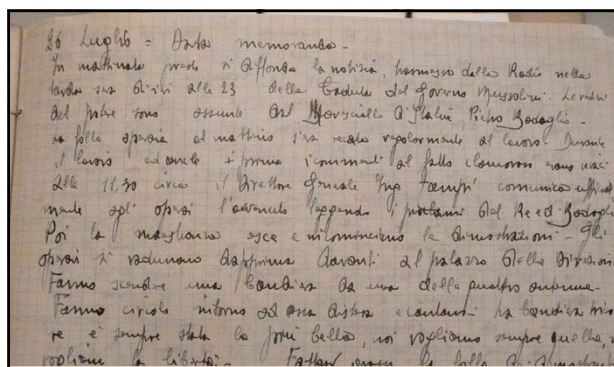 26 Luglio = Data memoranda -
In mattinata presto si diffonde la notizia, trasmessa dalla Radio nella
tarda sera di ieri alle 23 della Caduta del Governo Mussolini. Le redini
del potere sono assunte dal Maresciallo d'Italia Pietro Badoglio -
La folla operaia al mattino s'era recata regolarmente al lavoro. Durante
il lavoro ed anche prima i commenti al fatto clamoroso erano vivaci
Alle 11,30 circa il Direttore Generale Ing comunica ufficial
mente agli operai l'avvenuto leggendo i proclami del Re e di Badoglio
Poi la maestranza esce e incominciano le dimostrazioni - Gli
operai si radunano dapprima davanti al palazzo della Direzione
Fanno scendere una bandiera da una delle quattro antenne -
Fanno circolo intorno ad essa distesa e cantano: la bandiera trico
re è sempre stata la più bella, noi vogliamo sempre quella,
vogliam la libertà - la folla di